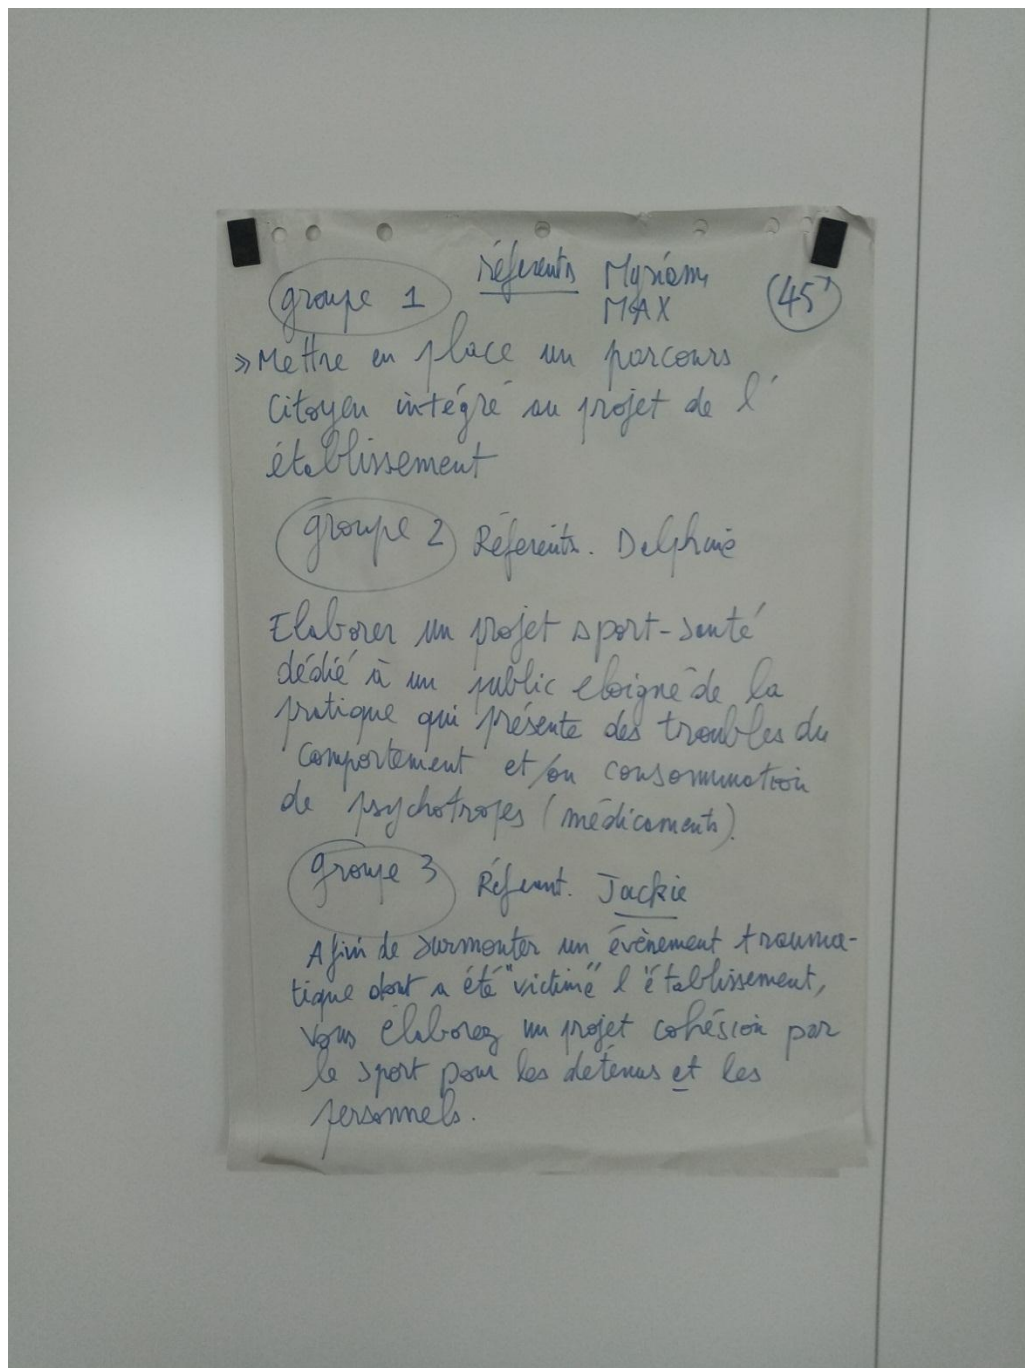 groupe 1 Référents Myriam, 45'
MAX
» Mettre en place un parcours
Citoyen intégré au projet de l'
établissement
groupe 2 Référents. Delphine
Elaborer un projet sport-santé
dédié à un public eloigné de la
pratique qui présente des troubles du
comportement et/ou consommation
de psychotropes (médicaments).
groupe 3 Référent. Jackie
Afin de surmonter un évènement trauma-
tique dont a été "victime" l'établissement,
vous élaborez un projet cohésion par
le sport pour les détenus et les
personnels.